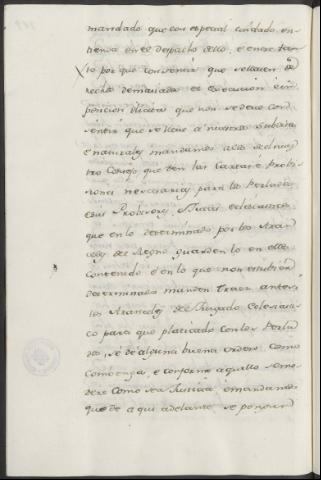 mandado que con especial cuidado en-
tienda en el despacho dello, e entre tan
to por que conviene que se lleven
recho demasiado ni execucion e im
posicion ilicitas que non se deve con
sentir que se lleve a nuestros subditos
e naturales mandamos alos del nues
tro Consejo que den las Cartas e Provi
siones necesarias para los Perlados
e sus Provisores, e Jueces eclesiasticos
que en lo determinado por los Aran
celes del Reyno guarden lo en ellos
contenido e en lo que non estubiere
determinado manden traer ante
los Aranceles del Juzgado Eclesiasti
co para que platicado con los Perla
dos, se dé alguna buena orden como
convenga, e conforme aquello se mo
dere como sea Justicia e mandamos
que de aqui adelante se pongan